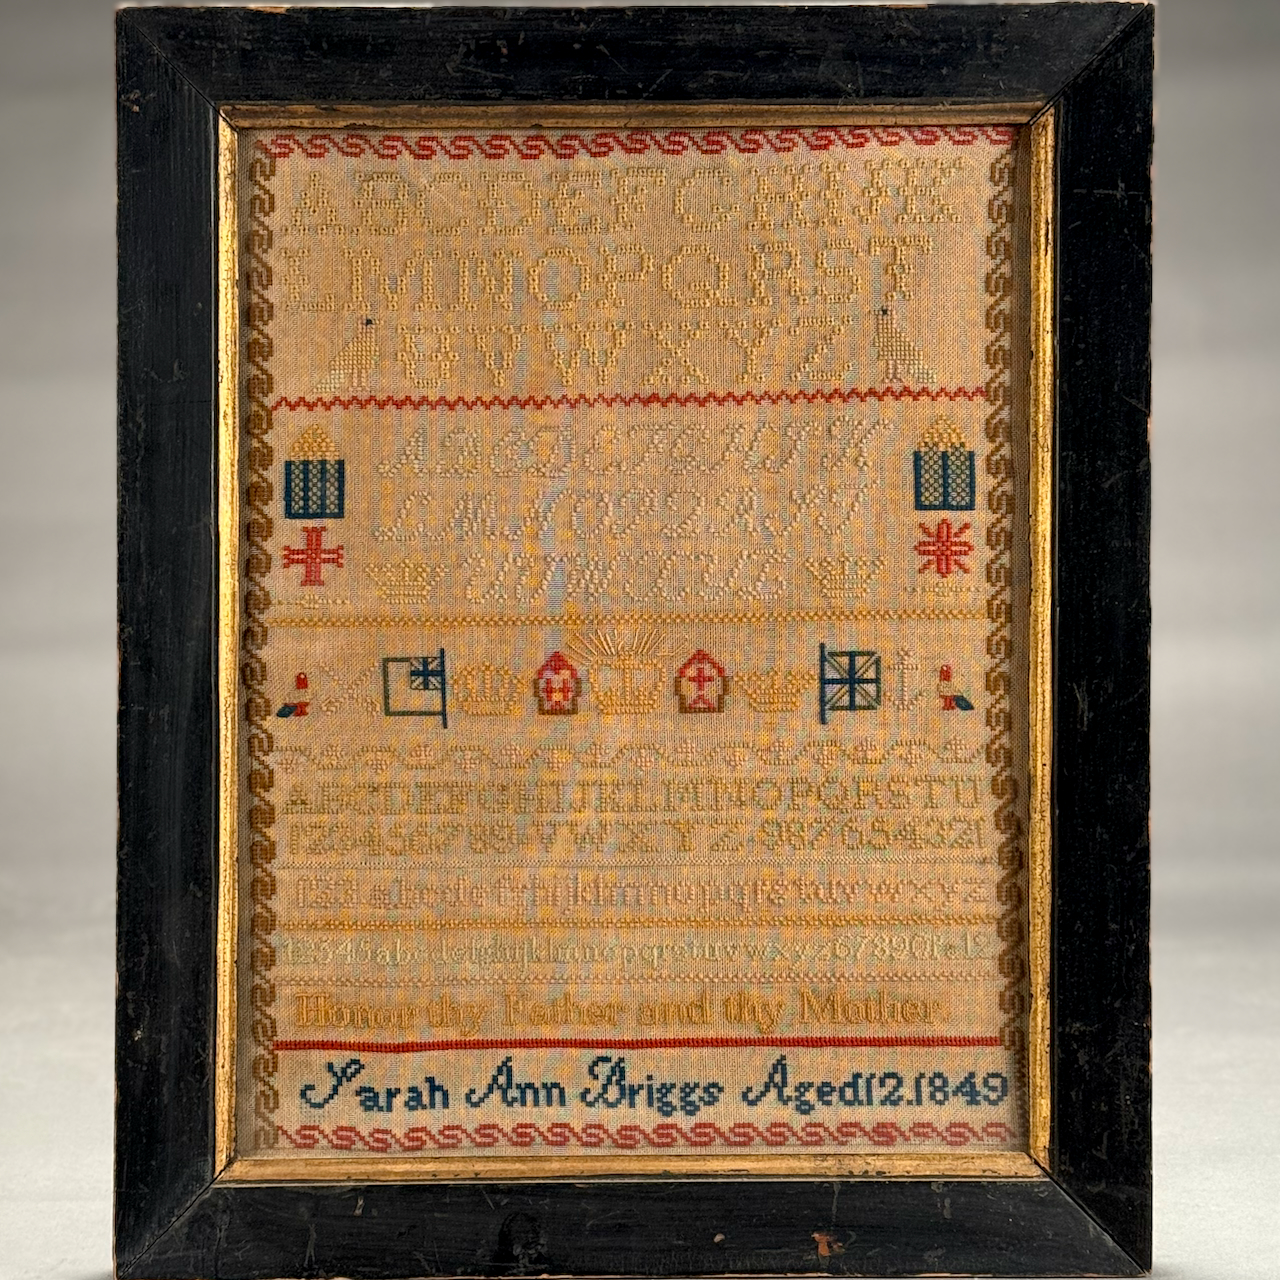 ABCDEFGHIJK
LMNOPQRST
UVWXYZ
ABCDEFGHIJK
LMNOPQRST
UVWXYZ
ABCDEFGHIJKLMNOPQRSTU
123456789.VWXYZ.987654321
123.abcdefghijklmnopqrstuvwxyz
12345abcdefghijklmnopqrstuvwxyz67890
Honor thy Father and thy Mother.
Sarah Ann Briggs Aged12.1849